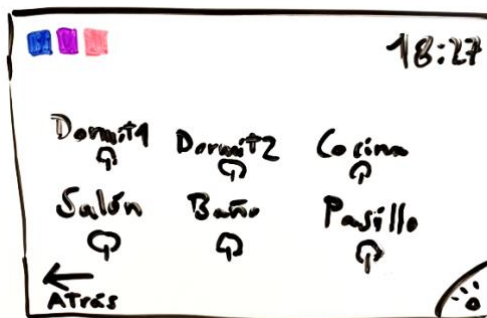 18:27
Dormit1 Dormit2 Cocina
Salón Baño Pasillo
Atrás